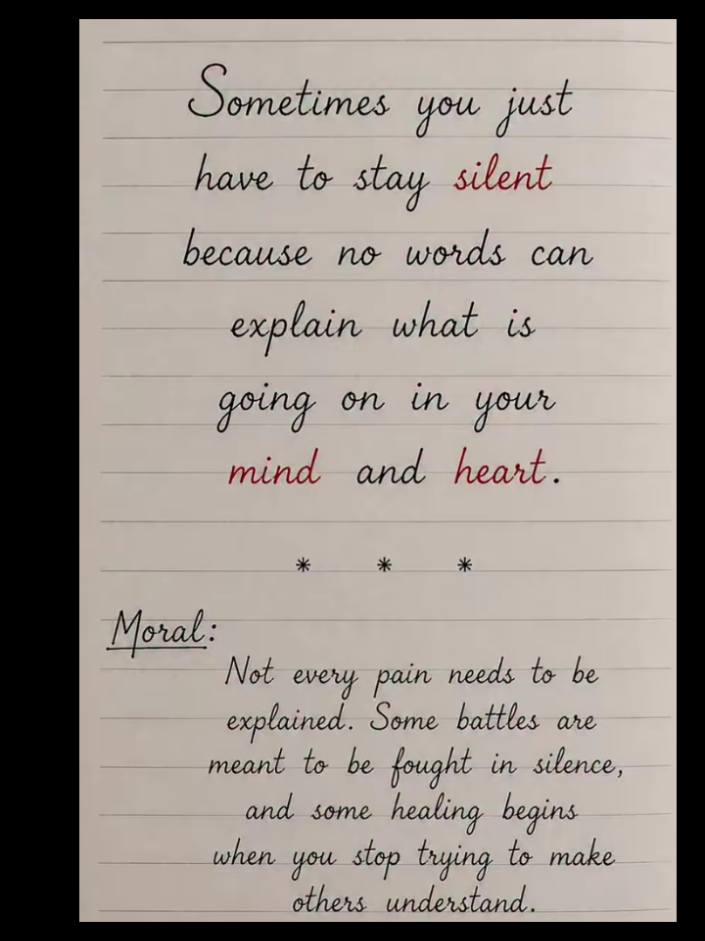 Sometimes you just
have to stay silent
because no words can
explain what is
going on in your
mind and heart.
* * *
Moral:
Not every pain needs to be
explained. Some battles are
meant to be fought in silence,
and some healing begins
when you stop trying to make
others understand.